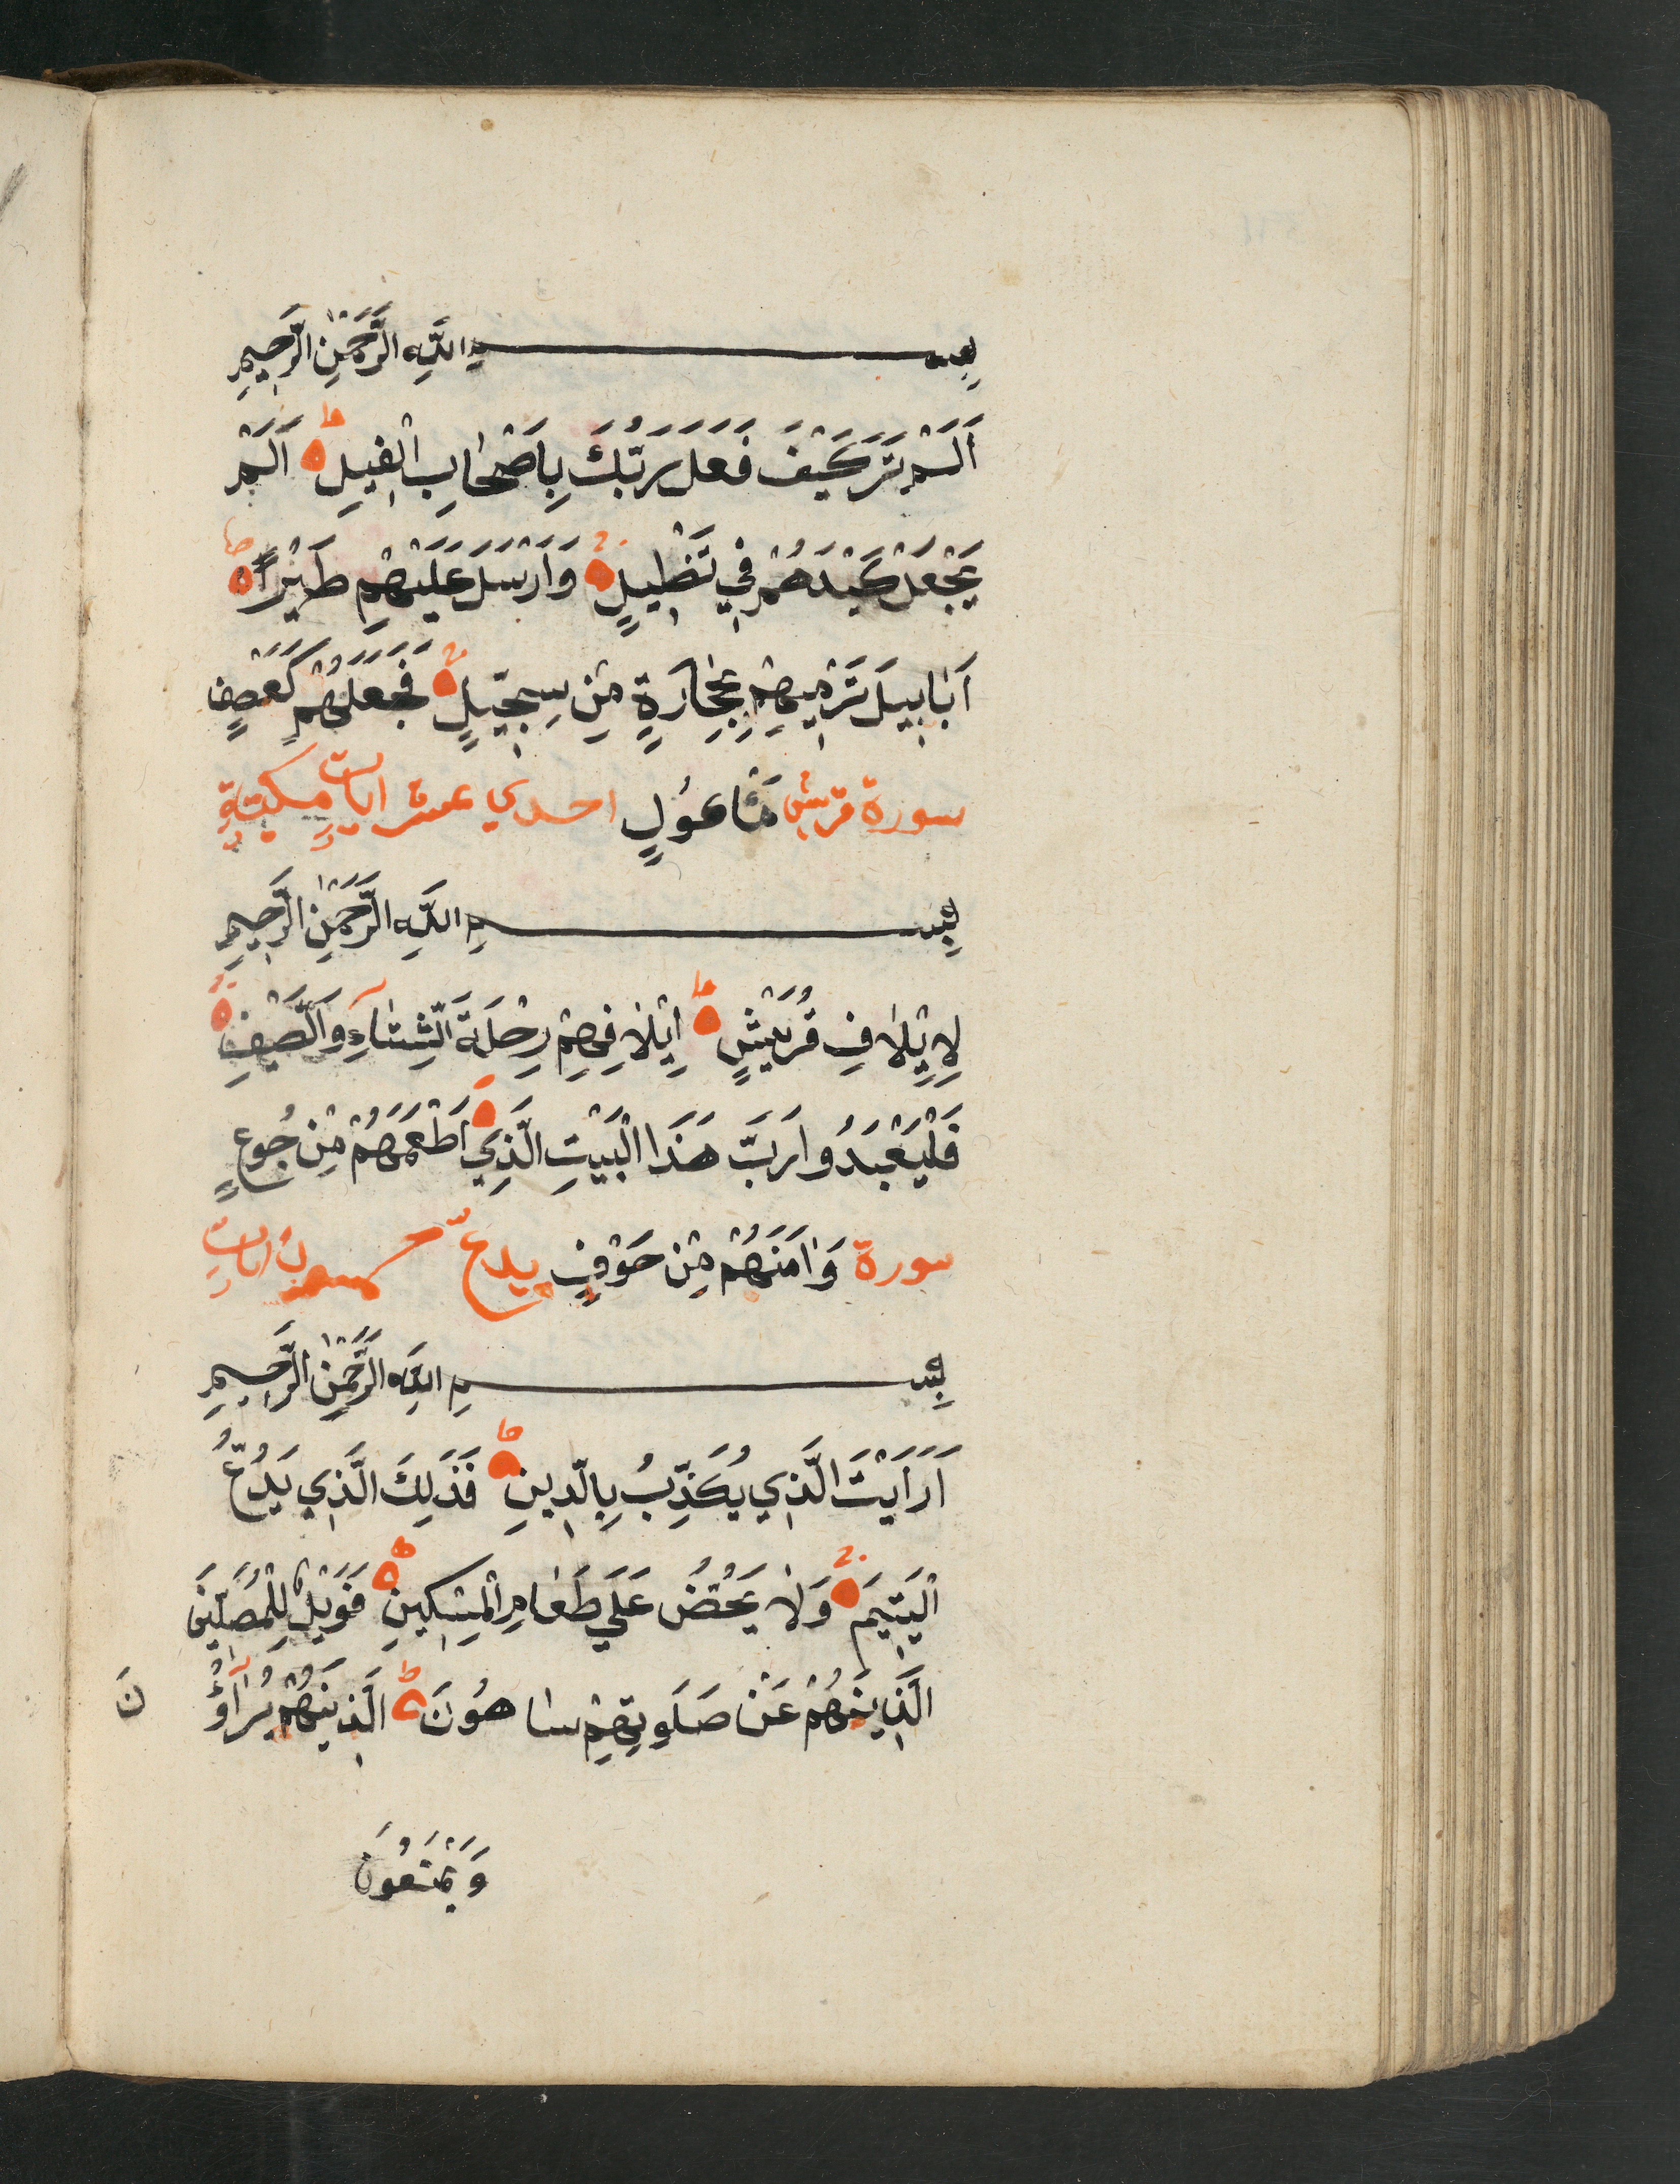 بِسْمِ اللَّهِ الرَّحْمٰنِ الرَّحِيمِ
أَلَمْ تَرَ كَيْفَ فَعَلَ رَبُّكَ بِاَصْحٰابِ الْفِيلِ ط اَلَمْ
يَجْعَلْ كَيْدَهُمْ فِي تَضْلِيلٍ وَاَرْسَلَ عَلَيْهِمْ طَيْراً
اَبٰابِيلَ تَرْمِيهِمْ بِحِجٰارَةٍ مِنْ سِجِّيلٍ فَجَعَلَهُمْ كَعَصْفٍ
سورة قريش مَأْعُولٍ احدي عشر اياتٍ مكيةٍ
بِسْمِ اللَّهِ الرَّحْمٰنِ الرَّحِيمِ
لِاِيلٰافِ قُرَيْشٍ ط اِيلٰافِهِمْ رِحْلَةَ الشِّتٰآءِ وَالصَّيْفِ
فَلْيَعْبَدُوا رَبَّ هَذَا الْبَيْتِ الَّذِي اَطْعَمَهُمْ مِنْ جُوعٍ
سورة وَاٰمَنَهُمْ مِنْ خَوْفٍ يدعّ اياتٍ
بِسْمِ اللَّهِ الرَّحْمٰنِ الرَّحِيمِ
اَرَاَيْتَ الَّذِي يُكَذِّبُ بِالدِّينِ ط فَذَلِكَ الَّذِي يَدُعُّ
الْيَتِيمَ وَلٰا يَحُضُّ عَلَي طَعٰامِ الْمِسْكِينِ ط فَوَيْلٌ لِلْمُصَلِّينَ
الَّذِينَهُمْ عَنْ صَلَوتِهِمْ سٰاهُونَ ط الَّذِينَهُمْ يُرٰآؤُ نَ
وَيَمْنَعُونَ